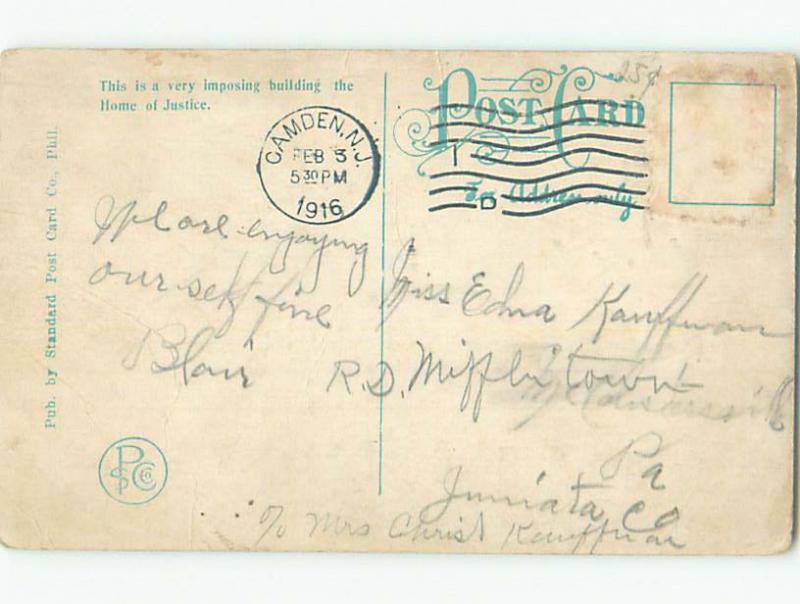 This is a very imposing building the
Home of Justice.
POST CARD
25¢
For Address only
CAMDEN, N.J.
FEB 3
5 30 PM
1916
Pub. by Standard Post Card Co., Phil.
We are enjoying
our self fine
Blair
Miss Edna Kauffman
R.D. Mifflintown
Pa
Juniata Co
c/o Mrs Christ Kauffman